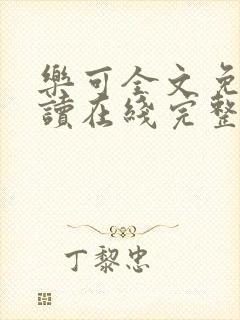 樂可全文免
讀在綫完整
丁黎忠